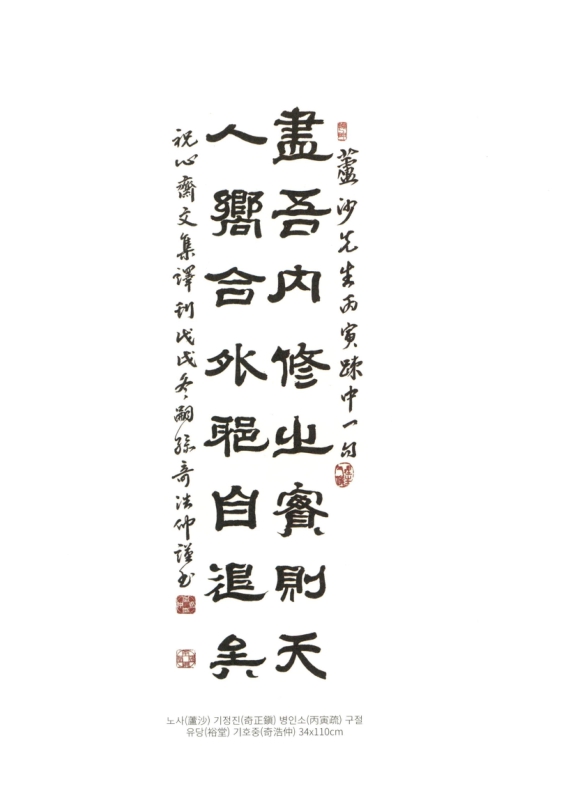 蘆沙先生丙寅踈中一句
盡吾內修之實則天
人嚮合外自退矣
祝心齋文集譯刊戊戌冬嗣孫奇浩仲謹書
노사(蘆沙) 기정진(奇正鎭) 병인소(丙寅疏) 구절
유당(裕堂) 기호중(奇浩仲) 34x110cm